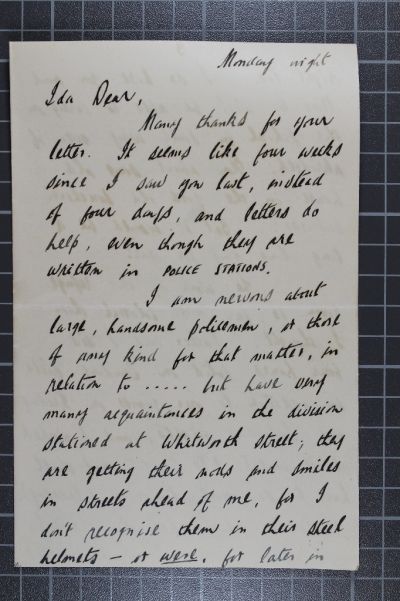 Monday night
Ida Dear,
Many thanks for your
letter. It seems like four weeks
since I saw you last, instead
of four days, and letters do
help, even though they are
written in POLICE STATIONS.
I am nervous about
large, handsome policemen, or those
of any kind for that matter, in
relation to ..... but have very
many acquaintances in the division
stationed at Whitworth Street; they
are getting their nods and smiles
in streets ahead of me, for I
don't recognise them in their steel
helmets – or were, for later in